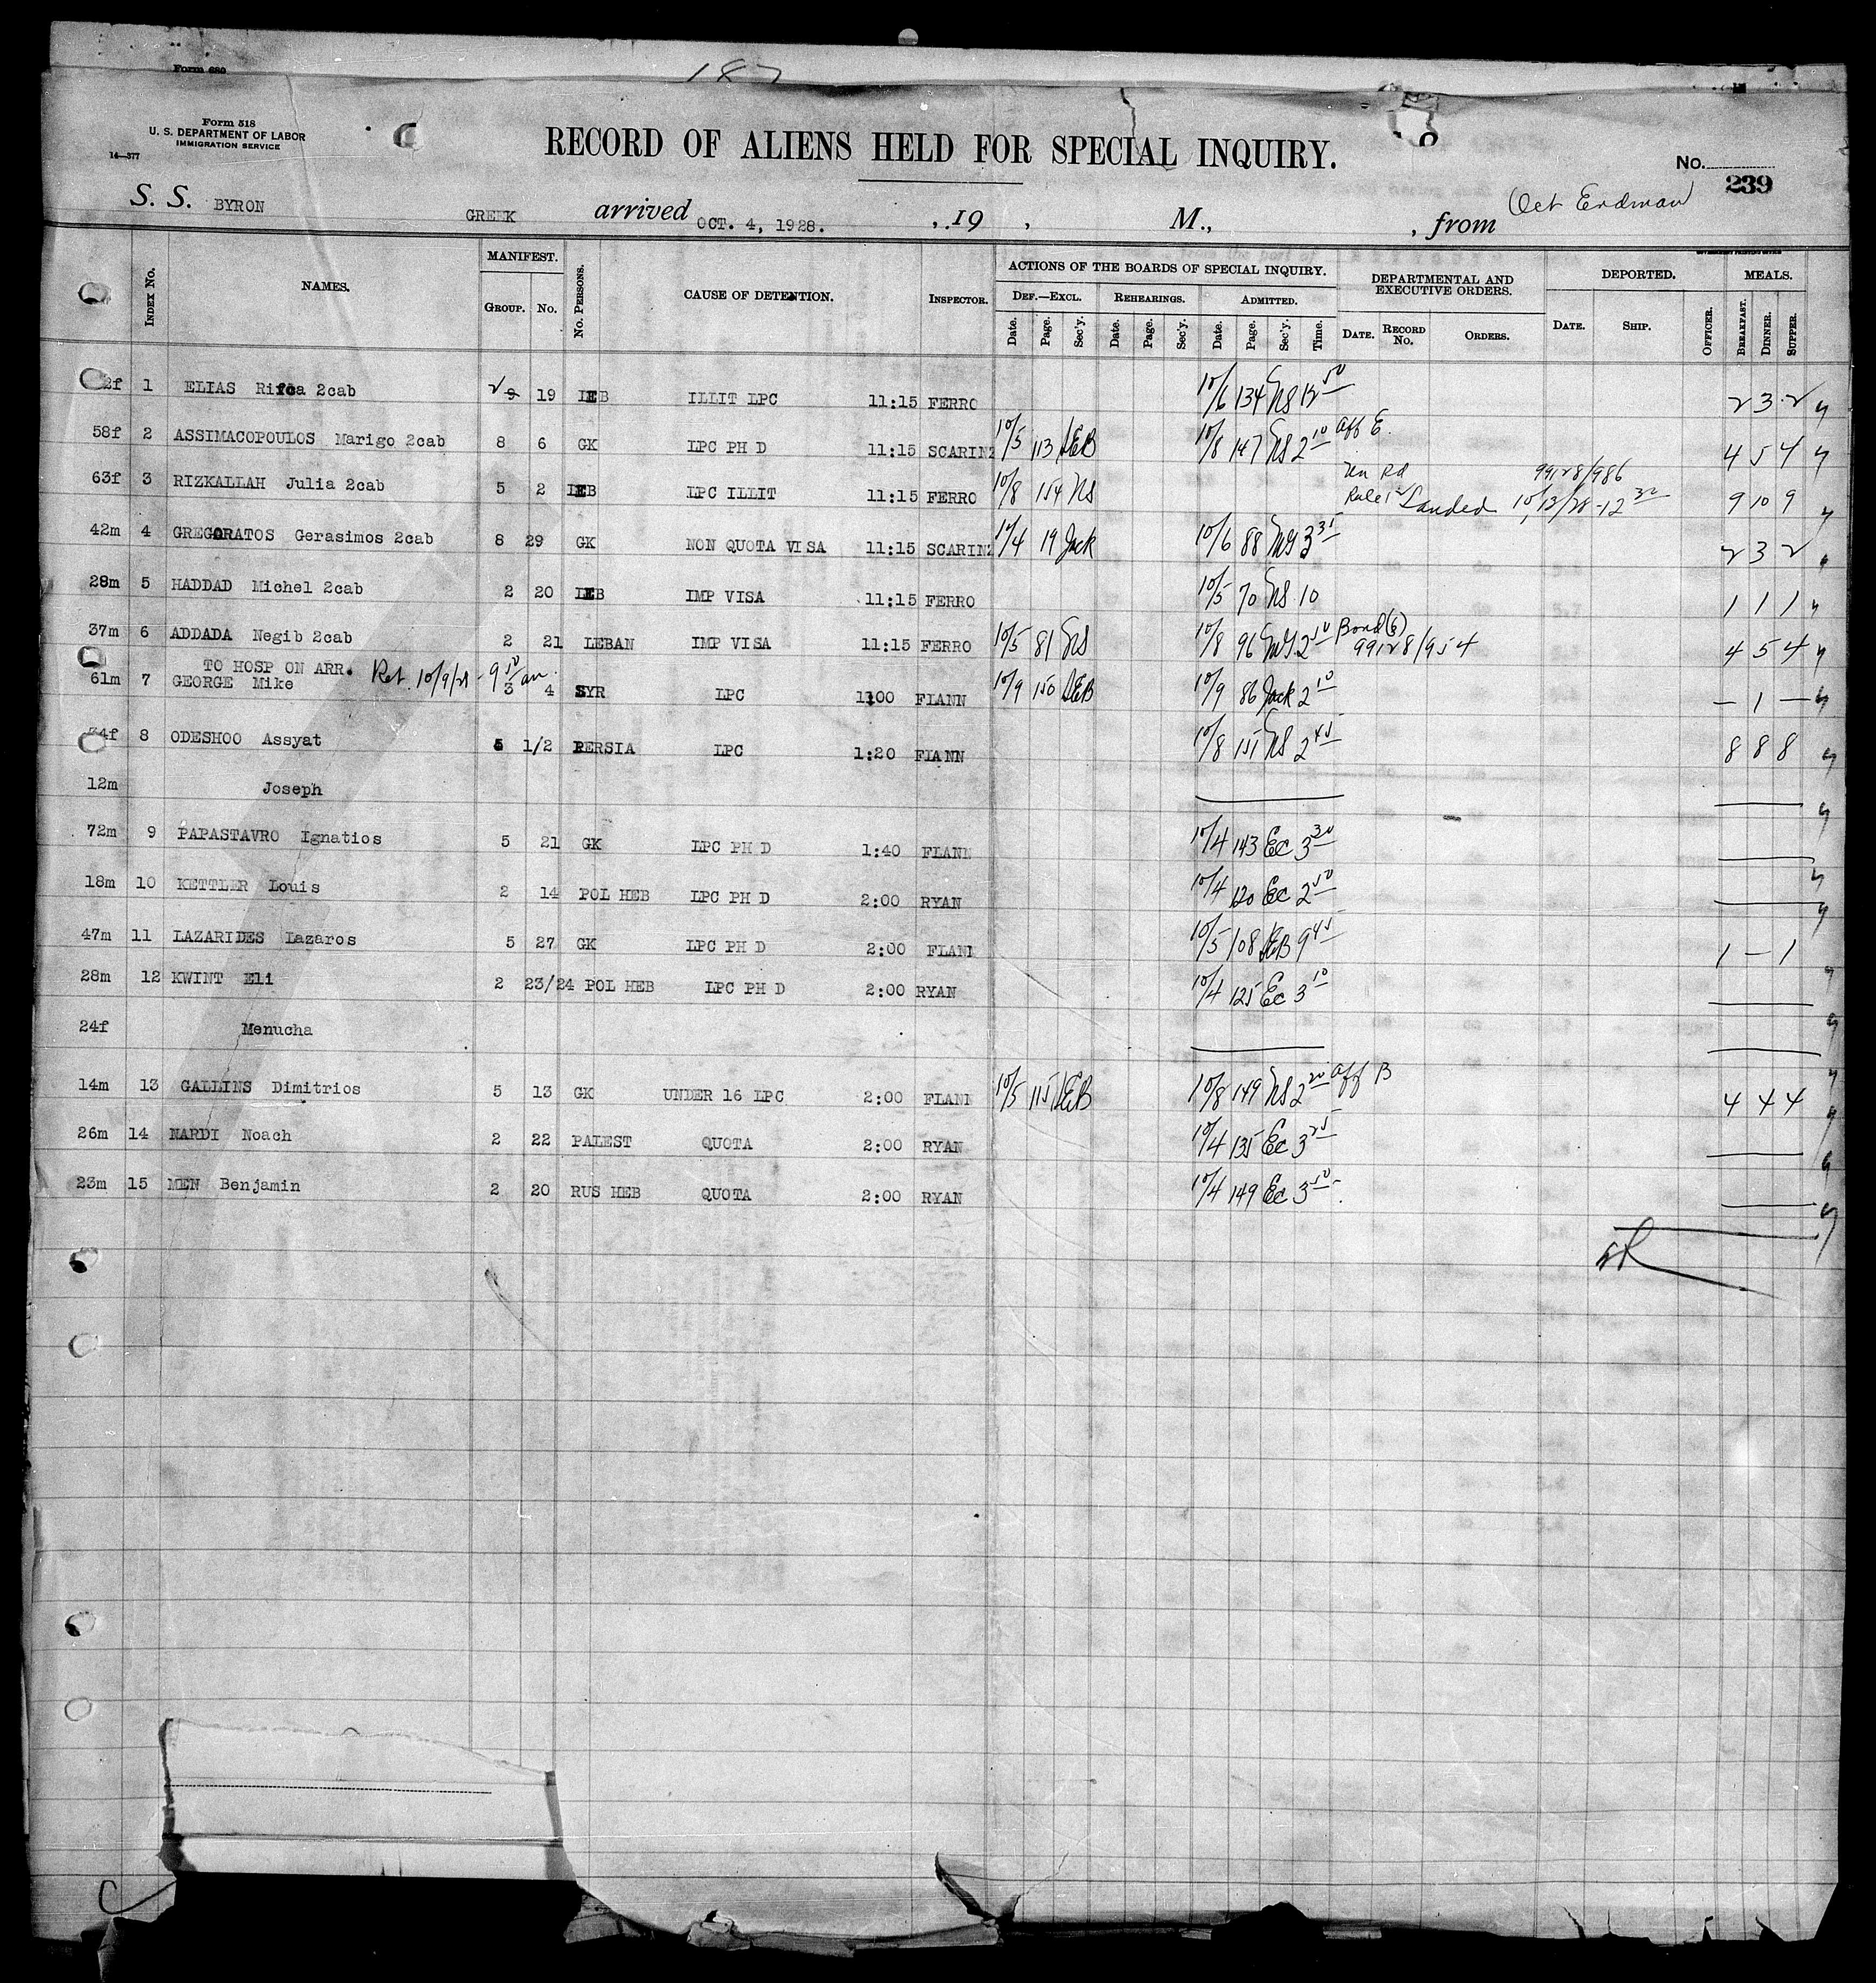 Form 680
187
Form 518
U. S. DEPARTMENT OF LABOR
IMMIGRATION SERVICE
14—377
RECORD OF ALIENS HELD FOR SPECIAL INQUIRY.
No. 239
S. S. BYRON GREEK arrived OCT. 4, 1928. , 19 , M., , from (Oct Erdman)
INDEX No. NAMES. MANIFEST. GROUP. No. No. PERSONS. CAUSE OF DETENTION. INSPECTOR. ACTIONS OF THE BOARDS OF SPECIAL INQUIRY. DEF.—EXCL. REHEARINGS. ADMITTED. DEPARTMENTAL AND EXECUTIVE ORDERS. DEPORTED. MEALS.
Date. Page. Sec'y. Date. Page. Sec'y. Date. Page. Sec'y. Time. DATE. RECORD No. ORDERS. DATE. SHIP. OFFICER. BREAKFAST. DINNER. SUPPER.
2f 1 ELIAS Rifca 2cab 9 19 LEB ILLIT LPC 11:15 FERRO 10/6 134 NS 12 50 2 3 2
58f 2 ASSIMACOPOULOS Marigo 2cab 8 6 GK LPC PH D 11:15 SCARINZ 10/5 113 LEB 10/8 147 NS 2 10 Aff E. 4 5 4
63f 3 RIZKALLAH Julia 2cab 5 2 LEB LPC ILLIT 11:15 FERRO 10/8 154 NS Rule 1 99128/986 Landed 10/13/28 - 12 30 9 10 9
42m 4 GREGORATOS Gerasimos 2cab 8 29 GK NON QUOTA VISA 11:15 SCARINZ 10/4 19 Jack 10/6 88 MG 3 35 2 3 2
28m 5 HADDAD Michel 2cab 2 20 LEB IMP VISA 11:15 FERRO 10/5 70 NS 10 1 1 1
37m 6 ADDADA Negib 2cab 2 21 LEBAN IMP VISA 11:15 FERRO 10/5 81 NS 10/8 96 MG 2 50 Bond (6) 99128/954 4 5 4
TO HOSP ON ARR. Ret. 10/9/28 - 9 50 am.
61m 7 GEORGE Mike 3 4 SYR LPC 1100 FLANN 10/9 150 LEB 10/9 86 Jack 2 10 — 1 —
34f 8 ODESHOO Assyat 5 1/2 PERSIA LPC 1:20 FLANN 10/8 151 NS 2 45 8 8 8
12m Joseph
72m 9 PAPASTAVRO Ignatios 5 21 GK LPC PH D 1:40 FLANN 10/4 143 Ec 3 30
18m 10 KETTLER Louis 2 14 POL HEB LPC PH D 2:00 RYAN 10/4 120 Ec 2 50
47m 11 LAZARIDES Lazaros 5 27 GK LPC PH D 2:00 FLANN 10/5 108 LEB 9 45 1 — 1
28m 12 KWINT Eli 2 23/24 POL HEB LPC PH D 2:00 RYAN 10/4 125 Ec 3 10
24f Menucha
14m 13 GALLINS Dimitrios 5 13 GK UNDER 16 LPC 2:00 FLANN 10/5 115 LEB 10/8 149 NS 2 20 Aff B 4 4 4
26m 14 NARDI Noach 2 22 PALEST QUOTA 2:00 RYAN 10/4 135 Ec 3 25
23m 15 MEN Benjamin 2 20 RUS HEB QUOTA 2:00 RYAN 10/4 149 Ec 3 50